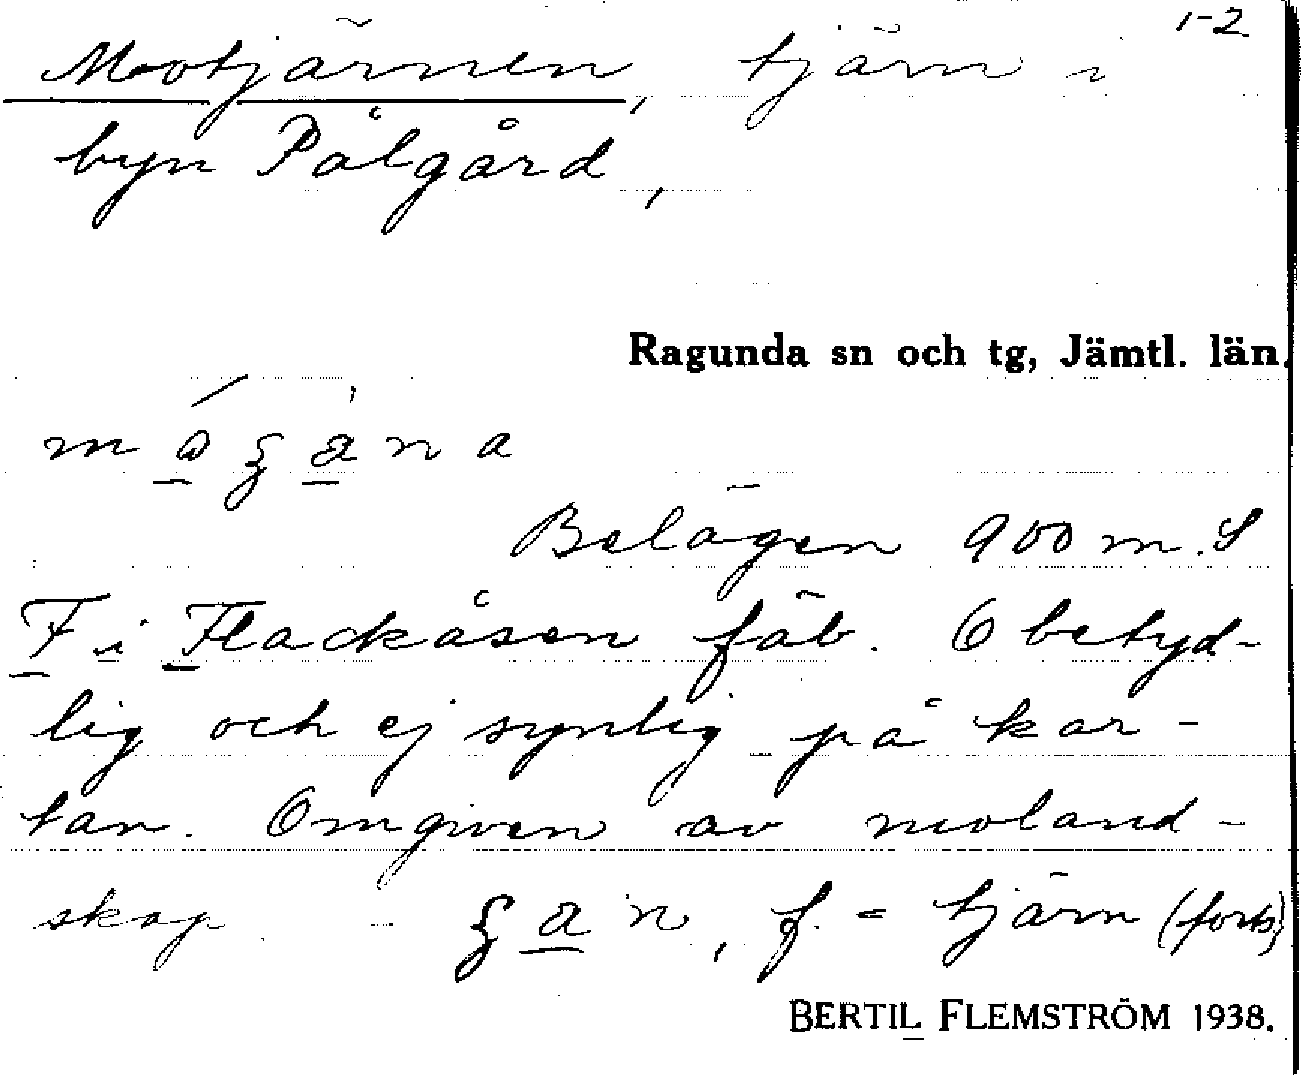 1-2
Motjärnen, tjärn i
byn Pålgård,
Ragunda sn och tg, Jämtl. län.
Belägen 900 m. S
F i Flackåsen fäb. Obetyd-
lig och ej synlig på kar-
tan. Omgiven av moland-
skap. - , f. = tjärn (forts)
BERTIL FLEMSTRÖM 1938.